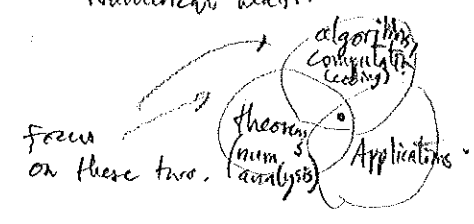 algorithms,
computation
(coding)
theorems
(num
analysis)
Applications
Focus
on these two.